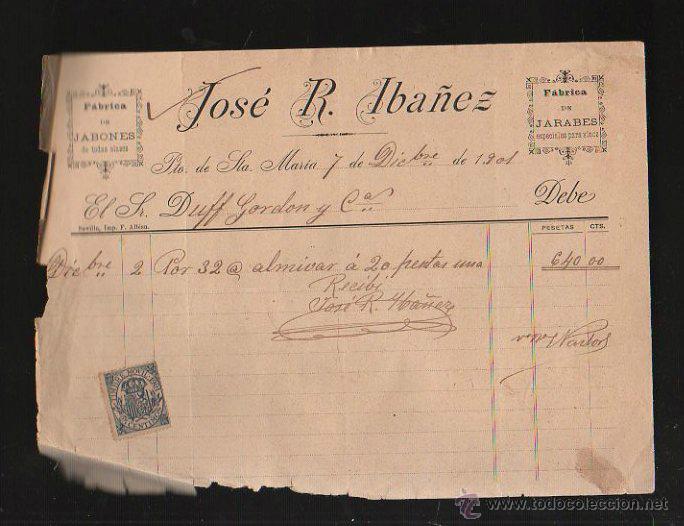 José R. Ibañez
Fábrica
DE
JABONES
de todas clases
Fábrica
DE
JARABES
especiales para vinos
Pto. de Sta. María 7 de Dicbre de 1901
El Sr. Duff Gordon y Ca Debe
Sevilla, Imp. F. Albisu.
PESETAS CTS.
Dicbre 2 Por 32 @ almivar á 20 pesetas una 640 00
Recibí
José R. Ibáñez
todocoleccion
www.todocoleccion.net